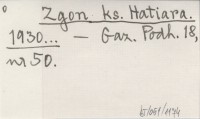 Zgon ks. Hatiara.
1930... — Gaz. Podh. 18,
nr 50.